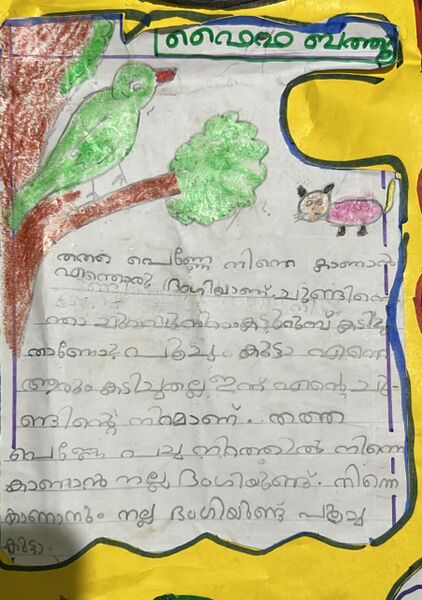 ഫൈഹ ബത്തൂ
തത്ത പെണ്ണേ നിന്നെ കാണാൻ
എന്തൊരു ഭംഗിയാണ്. ചുണ്ടിനെ
ന്താ ചുവപ്പുനിറം കട്ടുറുമ്പ് കടിച്ച
താണോ? പൂച്ച കുട്ടാ എന്നെ
ആരും കടിച്ചതല്ല ഇത് എന്റെ ചു-
ണ്ടിന്റെ നിറമാണ്. തത്ത
പെണ്ണേ പച്ച നിറത്തിൽ നിന്നെ
കാണാൻ നല്ല ഭംഗിയുണ്ട്. നിന്നെ
കാണാനും നല്ല ഭംഗിയുണ്ട് പൂച്ച
കുട്ടാ.